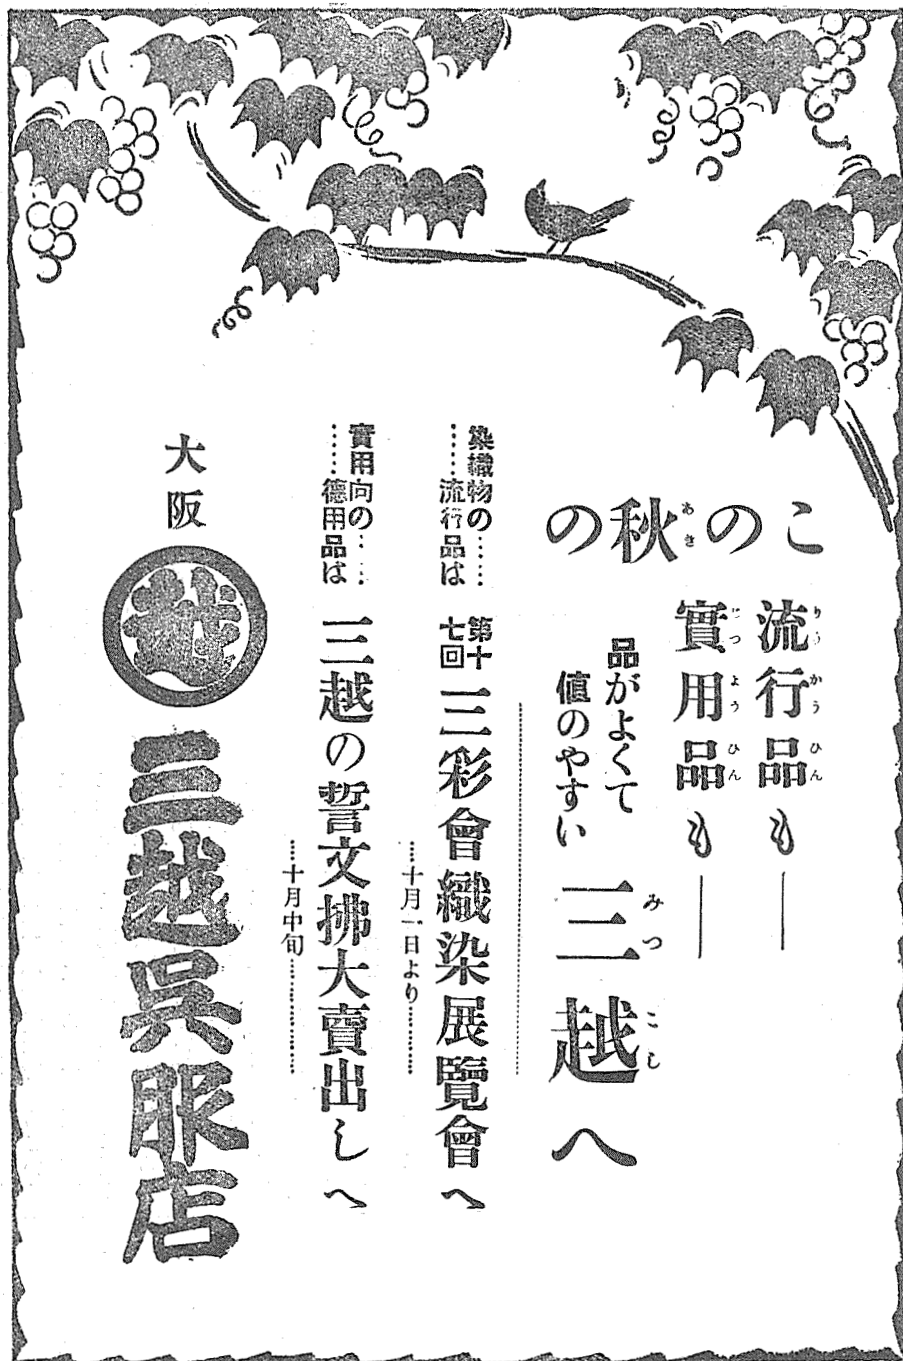 この秋の
流行品も
實用品も
品がよくて
値のやすい
三越へ
染織物の……
……流行品は
第十七回
三彩會織染展覽會へ
……十月一日より……
實用向の……
……德用品は
三越の誓文拂大賣出しへ
……十月中旬……
大阪
越
三越呉服店